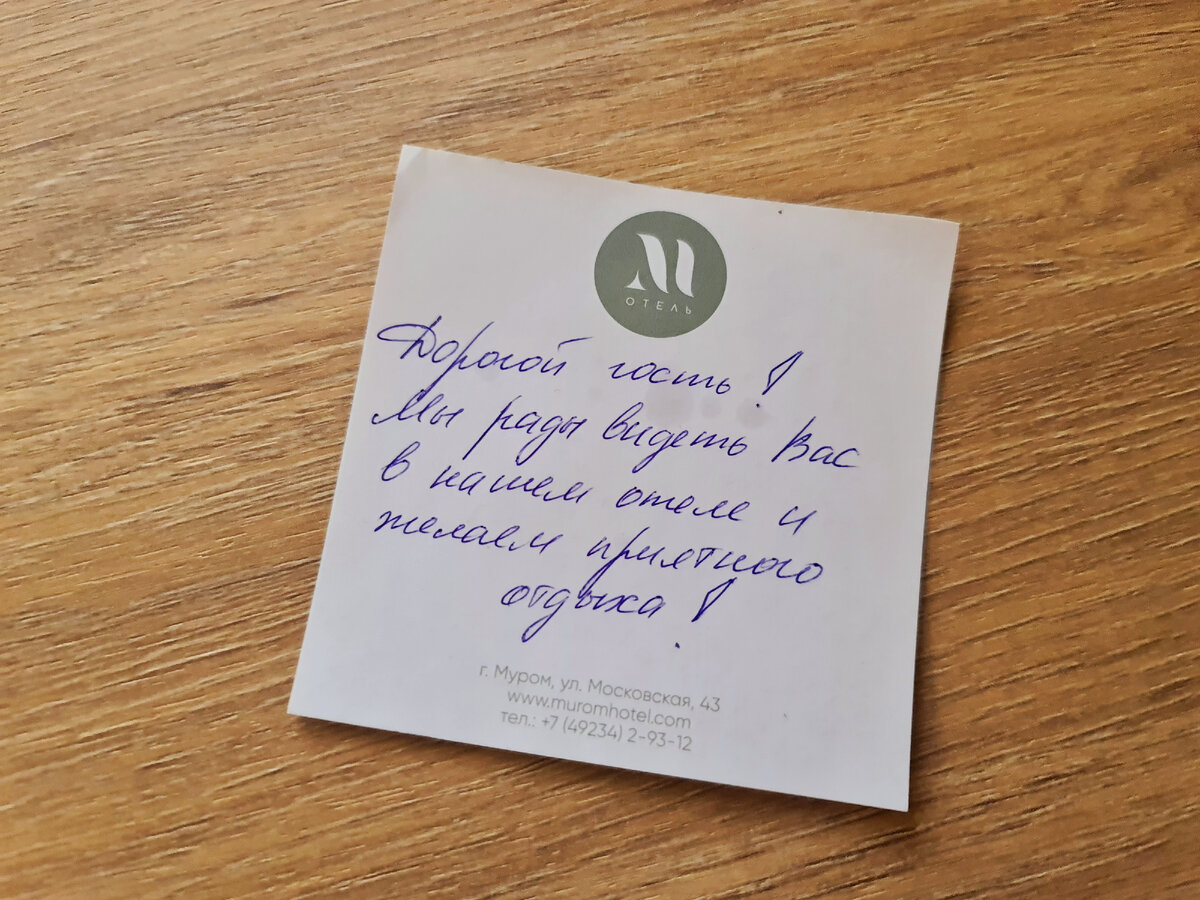 М
ОТЕЛЬ
Дорогой гость!
Мы рады видеть Вас
в нашем отеле и
желаем приятного
отдыха!
г. Муром, ул. Московская, 43
www.muromhotel.com
тел.: +7 (49234) 2-93-12